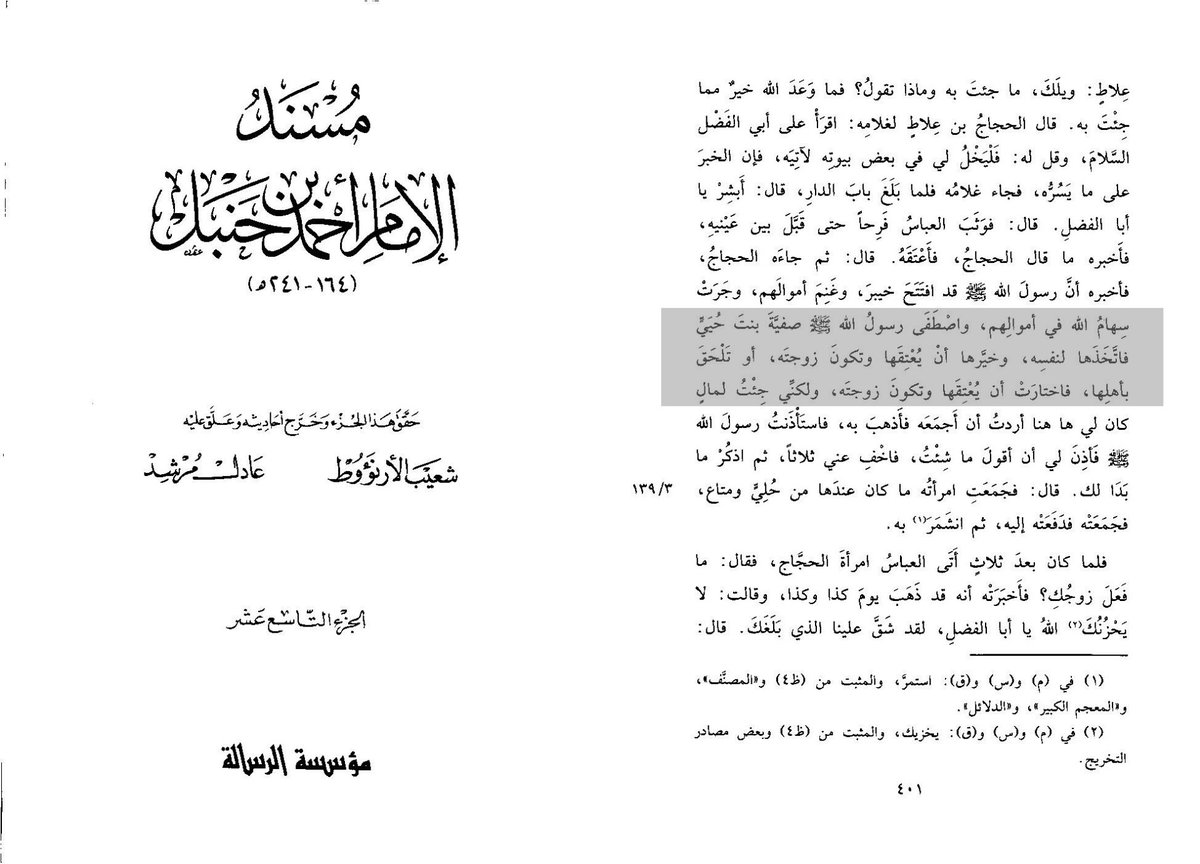 مُسْنَدُ
الإمَامِ أحْمَدَ بْنِ حَنْبَل
(١٦٤-٢٤١ه)
حَقّقَ هٰذَا الجُزْء وَخَرَّجَ أحَاديثه وَعَلَّقَ عَلَيْه
شعَيبُ الأرْنَؤُوط عَادِل مُرشِد
الجزءُ التّاسع عَشَر
مؤسسة الرسالة
عِلاطٍ: ويلَكَ، ما جئتَ به وماذا تقولُ؟ فما وَعَدَ الله خيرٌ مما
جِئْتَ به. قال الحجاجُ بن عِلاطٍ لغلامِه: اقرَأْ على أبي الفَضْل
السَّلامَ، وقل له: فَلْيَخْلُ لي في بعض بيوتِه لآتِيَه، فإن الخبرَ
على ما يَسُرُّه، فجاء غلامُه فلما بَلَغَ بابَ الدار، قال: أَبشِرْ يا
أبا الفضلِ. قال: فوَثَبَ العباسُ فَرِحاً حتى قَبَّلَ بين عَيْنيهِ،
فأخبره ما قال الحجاجُ، فأَعْتَقَهُ. قال: ثم جاءَه الحجاجُ،
فأخبره أنَّ رسولَ الله ﷺ قد افتَتَحَ خيبرَ، وغَنِمَ أموالَهم، وجَرَتْ
سِهامُ الله في أموالِهم، واصْطَفَى رسولُ الله ﷺ صفيَّةَ بنتَ حُيَيٍّ
فاتَّخَذَها لنفسِه، وخيَّرها أنْ يُعْتِقَها وتكونَ زوجتَه، أو تَلْحَقَ
بأهلِها، فاختارَتْ أن يُعْتِقَها وتكونَ زوجتَه، ولكنِّي جِئْتُ لمالٍ
كان لي ها هنا أردتُ أن أَجمَعَه فأَذهبَ به، فاستأْذَنتُ رسولَ الله
ﷺ فَأَذِنَ لي أن أقولَ ما شِئْتُ، فاخْفِ عني ثلاثاً، ثم اذكُرْ ما
بَدَا لك. قال: فجَمَعَتِ امرأتُه ما كان عندَها من حُلِيٍّ ومتاع، ١٣٩/٣
فجَمَعَتْه فدَفَعَتْه إليه، ثم انشَمَرَ(١) به.
فلما كان بعدَ ثلاثٍ أَتَى العباسُ امرأةَ الحجَّاج، فقال: ما
فَعَلَ زوجُكِ؟ فأَخبَرَتْه أنه قد ذَهَبَ يومَ كذا وكذا، وقالت: لا
يَحْزُنُكَ(٢) اللهُ يا أبا الفضلِ، لقد شَقَّ علينا الذي بَلَغَكَ. قال:
(١) في (م) و(س) و(ق): استمرَّ، والمثبت من (ظ٤) و«المصنَّف»،
و«المعجم الكبير»، و«الدلائل».
(٢) في (م) و(س) و(ق): يخزيك، والمثبت من (ظ٤) وبعض مصادر
التخريج.
٤٠١